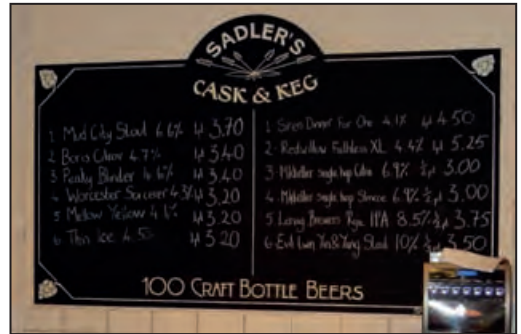 SADLER'S
CASK & KEG
1 Mud City Stout 6.6% 3.70
2 Boris Citrov 4.7% 3.40
3 Peaky Blinder 4.6% 3.40
4 Worcester Sorcerer 4.3% 3.20
5 Mellow Yellow 4.5% 3.20
6 Thin Ice 4.5% 3.20
1 Siren Dinner For One 4.1% 4.50
2 Redwillow Faithless XL 4.4% 5.25
3 Mikkeller single hop Citra 6.9% ½pt 3.00
4 Mikkeller single hop Simcoe 6.9% ½pt 3.00
5 Lervig Brewers Rye IPA 8.5% ½pt 3.75
6 Evil Twin Yin & Yang Stout 10% ½pt 3.50
100 CRAFT BOTTLE BEERS